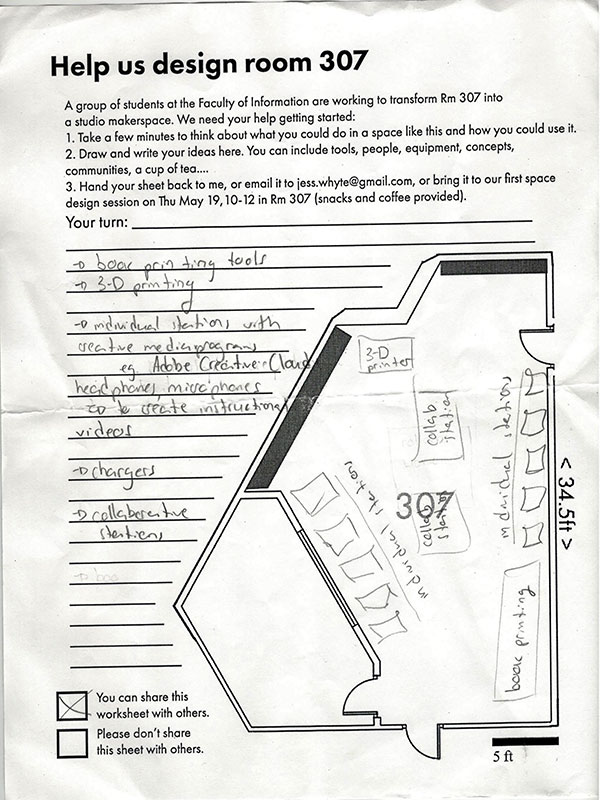 Help us design room 307
A group of students at the Faculty of Information are working to transform Rm 307 into
a studio makerspace. We need your help getting started:
1. Take a few minutes to think about what you could do in a space like this and how you could use it.
2. Draw and write your ideas here. You can include tools, people, equipment, concepts,
communities, a cup of tea....
3. Hand your sheet back to me, or email it to jess.whyte@gmail.com, or bring it to our first space
design session on Thu May 19, 10-12 in Rm 307 (snacks and coffee provided).
Your turn:
→ book printing tools
→ 3-D printing
→ individual stations with
creative media programs
eg. Adobe Creative Cloud
headphones, microphones
to create instructional
videos
→ chargers
→ collaborative
stations
3-D
printer
collab
station
individual stations
307
collab
station
individual stations
book printing
< 34.5ft >
5 ft
You can share this
worksheet with others.
Please don't share
this sheet with others.